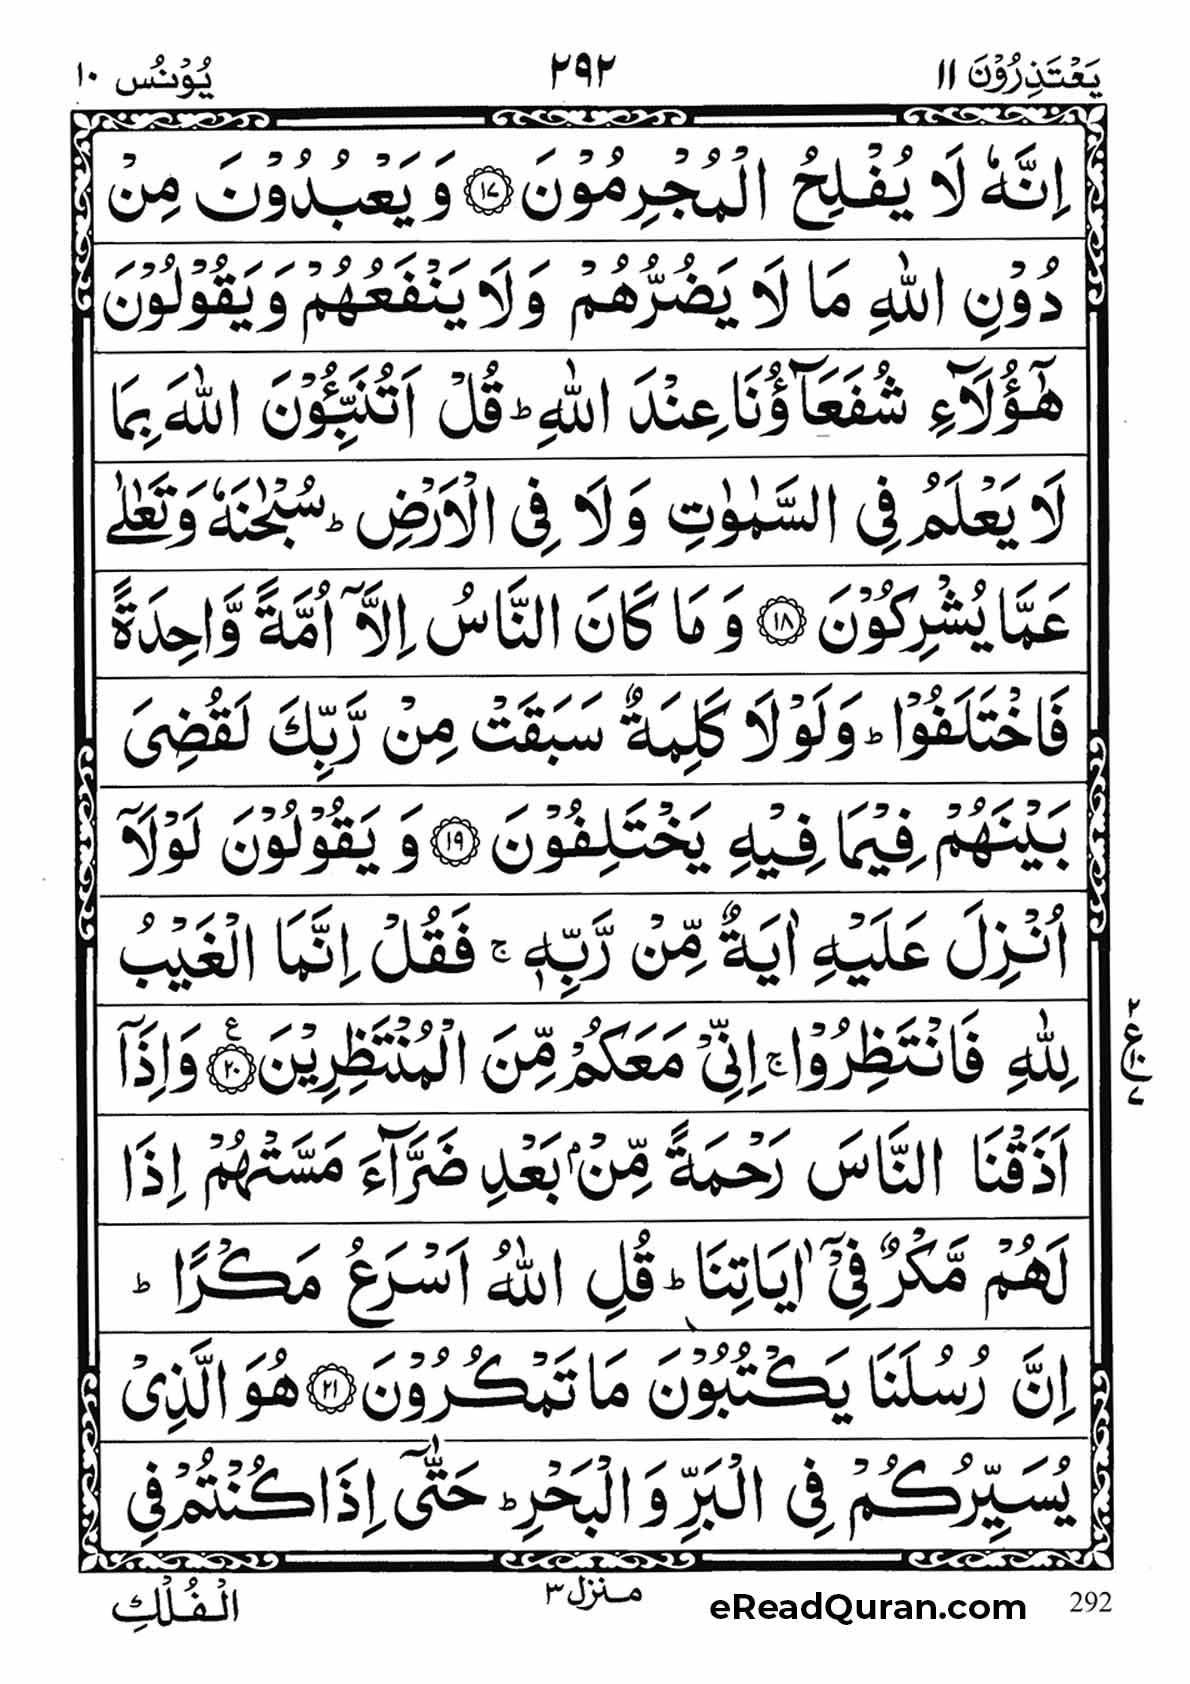 یَعْتَذِرُوْنَ ١١ ٢٩٢ یُوْنُس ١٠
اِنَّهٗ لَا یُفْلِحُ الْمُجْرِمُوْنَ ﴿١٧﴾ وَ یَعْبُدُوْنَ مِنْ
دُوْنِ اللّٰهِ مَا لَا یَضُرُّهُمْ وَلَا یَنْفَعُهُمْ وَیَقُوْلُوْنَ
هٰۤؤُلَآءِ شُفَعَآؤُنَا عِنْدَ اللّٰهِ ؕ قُلْ اَتُنَبِّـُٔوْنَ اللّٰهَ بِمَا
لَا یَعْلَمُ فِی السَّمٰوٰتِ وَ لَا فِی الْاَرْضِ ؕ سُبْحٰنَهٗ وَتَعٰلٰی
عَمَّا یُشْرِكُوْنَ ﴿١٨﴾ وَ مَا كَانَ النَّاسُ اِلَّاۤ اُمَّةً وَّاحِدَةً
فَاخْتَلَفُوْا ؕ وَلَوْلَا كَلِمَةٌ سَبَقَتْ مِنْ رَّبِّكَ لَقُضِیَ
بَیْنَهُمْ فِیْمَا فِیْهِ یَخْتَلِفُوْنَ ﴿١٩﴾ وَ یَقُوْلُوْنَ لَوْلَاۤ
اُنْزِلَ عَلَیْهِ اٰیَةٌ مِّنْ رَّبِّهٖ ۚ فَقُلْ اِنَّمَا الْغَیْبُ
لِلّٰهِ فَانْتَظِرُوْا ۚ اِنِّیْ مَعَكُمْ مِّنَ الْمُنْتَظِرِیْنَ ﴿٢٠﴾ ع وَاِذَاۤ
اَذَقْنَا النَّاسَ رَحْمَةً مِّنْۢ بَعْدِ ضَرَّآءَ مَسَّتْهُمْ اِذَا
لَهُمْ مَّكْرٌ فِیْۤ اٰیَاتِنَا ؕ قُلِ اللّٰهُ اَسْرَعُ مَكْرًا ؕ
اِنَّ رُسُلَنَا یَكْتُبُوْنَ مَا تَمْكُرُوْنَ ﴿٢١﴾ هُوَ الَّذِیْ
یُسَیِّرُكُمْ فِی الْبَرِّ وَ الْبَحْرِ ؕ حَتّٰۤی اِذَا كُنْتُمْ فِی
٢ ع ١٠ ٧
الْفُلْكِ منزل ٣ eReadQuran.com 292